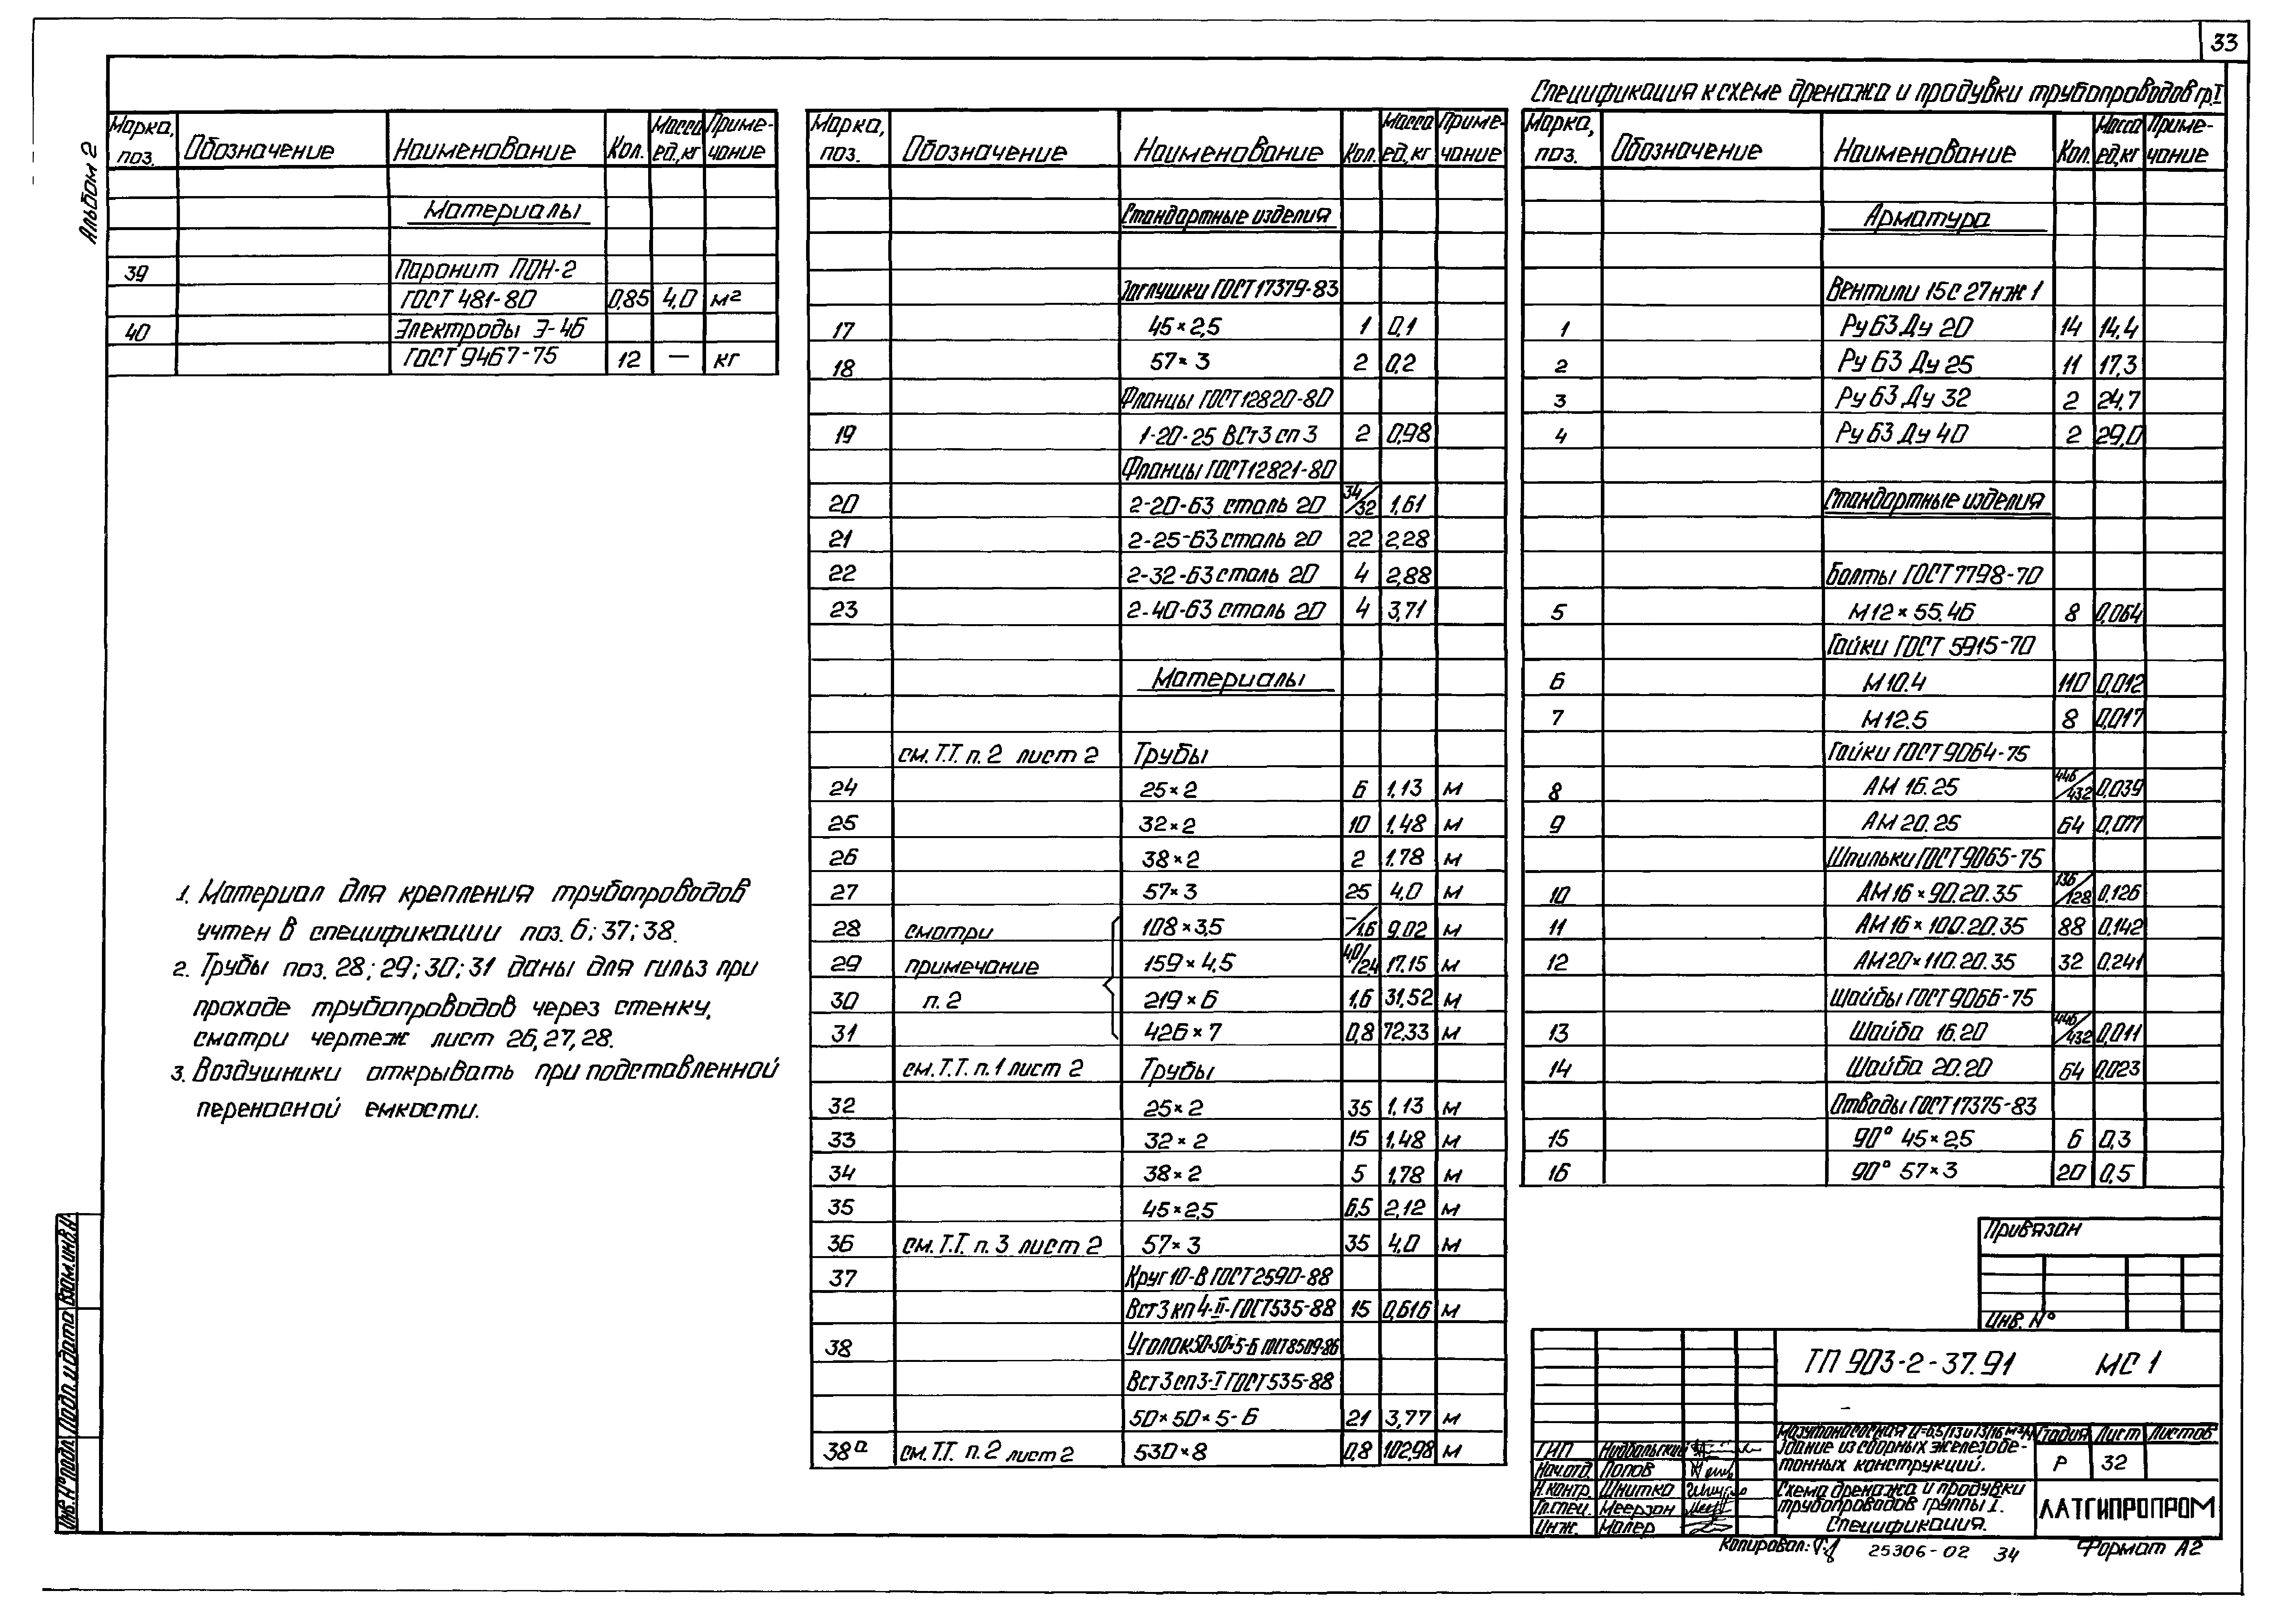 33
Альбом 2
Спецификация к схеме дренажа и продувки трубопроводов гр. I
Марка, поз. Обозначение Наименование Кол. Масса ед, кг Примечание
Материалы
39 Паронит ПОН-2
ГОСТ 481-80 0,85 4,0 м²
40 Электроды Э-46
ГОСТ 9467-75 12 — кг
1. Материал для крепления трубопроводов
учтен в спецификации поз. 6; 37; 38.
2. Трубы поз. 28; 29; 30; 31 даны для гильз при
проходе трубопроводов через стенку,
смотри чертеж лист 26, 27, 28.
3. Воздушники открывать при подставленной
переносной емкости.
Марка, поз. Обозначение Наименование Кол. Масса ед, кг Примечание
Стандартные изделия
Заглушки ГОСТ 17379-83
17 45×2,5 1 0,1
18 57×3 2 0,2
Фланцы ГОСТ 12820-80
19 1-20-25 ВСт3сп3 2 0,98
Фланцы ГОСТ 12821-80
20 2-20-63 сталь 20 34/32 1,61
21 2-25-63 сталь 20 22 2,28
22 2-32-63 сталь 20 4 2,88
23 2-40-63 сталь 20 4 3,71
Материалы
см. Т.Т. п. 2 лист 2 Трубы
24 25×2 6 1,13 м
25 32×2 10 1,48 м
26 38×2 2 1,78 м
27 57×3 25 4,0 м
28 смотри 108×3,5 -/1,6 9,02 м
29 примечание 159×4,5 40/24 17,15 м
30 п. 2 219×6 1,6 31,52 м
31 426×7 0,8 72,33 м
см. Т.Т. п. 1 лист 2 Трубы
32 25×2 35 1,13 м
33 32×2 15 1,48 м
34 38×2 5 1,78 м
35 45×2,5 6,5 2,12 м
36 см. Т.Т. п. 3 лист 2 57×3 35 4,0 м
37 Круг 10-В ГОСТ 2590-88
Вст3кп4-II-ГОСТ 535-88 15 0,616 м
38 Уголок 50×50×5-Б ГОСТ 8509-86
Вст3сп3-I ГОСТ 535-88
50×50×5-Б 21 3,77 м
38а см. Т.Т. п. 2 лист 2 530×8 0,8 102,98 м
Марка, поз. Обозначение Наименование Кол. Масса ед, кг Примечание
Арматура
Вентили 15с27нж1
1 Ру 63 Ду 20 14 14,4
2 Ру 63 Ду 25 11 17,3
3 Ру 63 Ду 32 2 24,7
4 Ру 63 Ду 40 2 29,0
Стандартные изделия
Болты ГОСТ 7798-70
5 М12×55.46 8 0,064
Гайки ГОСТ 5915-70
6 М10.4 110 0,012
7 М12.5 8 0,017
Гайки ГОСТ 9064-75
8 АМ 16.25 446/432 0,039
9 АМ 20.25 64 0,077
Шпильки ГОСТ 9065-75
10 АМ16×90.20.35 136/128 0,126
11 АМ16×100.20.35 88 0,142
12 АМ20×110.20.35 32 0,241
Шайбы ГОСТ 9066-75
13 Шайба 16.20 446/432 0,011
14 Шайба 20.20 64 0,023
Отводы ГОСТ 17375-83
15 90° 45×2,5 6 0,3
16 90° 57×3 20 0,5
Привязан
Инв. №
ТП 903-2-37.91 МС 1
Мазутонасосная Q=6,5/13 и 13/16 м³/ч
Здание из сборных железобе-
тонных конструкций.
Стадия Лист Листов
Р 32
Схема дренажа и продувки
трубопроводов группы I.
Спецификация.
ЛАТГИПРОПРОМ
ГИП
Нач.отд. Попов
Н.контр. Шнитко
Гл.спец. Меерзон
Инж. Малер
Инв. № подл. Подп. и дата Взам. инв. №
Копировал:
25306-02 34
Формат А2